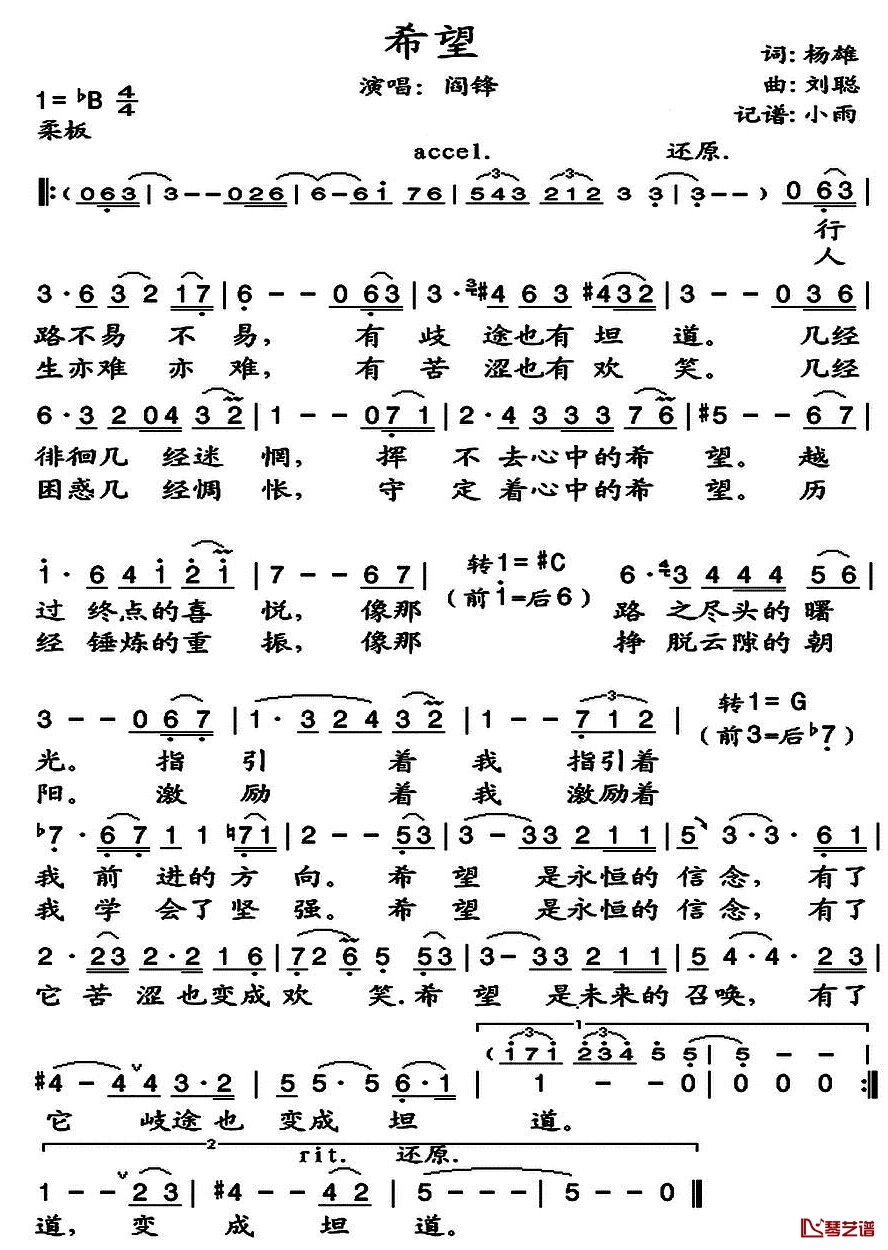 希望
词：杨雄
演唱：阎锋
曲：刘聪
1=♭B 4/4
记谱：小雨
柔板
accel. 还原.
‖:(063|3--026|6-61 76|543 212 3 3|3--) 0 63|
行
人
3·6 32 17|6--0 63|3·#4 63 #432|3--036|
路不易 不易， 有歧途也有坦道。几经
生亦难 亦难， 有苦涩也有欢笑。几经
6·3 204 32|1--071|2·4 333 76|#5--67|
徘徊几 经迷惘， 挥不去心中的希望。越
困惑几 经惆怅， 守定着心中的希望。历
i·6 41 2i|7--67|转1=#C 6·3 444 56|
(前i=后6)
过终点的喜悦，像那 路之尽头的曙
经锤炼的重振，像那 挣脱云隙的朝
3--067|1·324 32|1--712| 转1=G
(前3=后♭7)
光。指引 着我 指引着
阳。激励 着我 激励着
♭7·67 11 ♮71|2--53|3-33 211|5 3·3·61|
我前进的方向。希望 是永恒的信念，有了
我学会了坚强。希望 是永恒的信念，有了
2·23 2·2 16|726 5 53|3-33 211|5 4·4·23|
它苦涩也变成欢笑.希望 是未来的召唤，有了
1
(i7i 234 5 5|5--
#4-4 4 3·2|5 5·5 6·1|1--0|000:‖
它 歧途也 变成坦 道。
2
rit. 还原.
1--23|#4--42|5---|5--0‖
道，变 成 坦 道。
琴艺谱